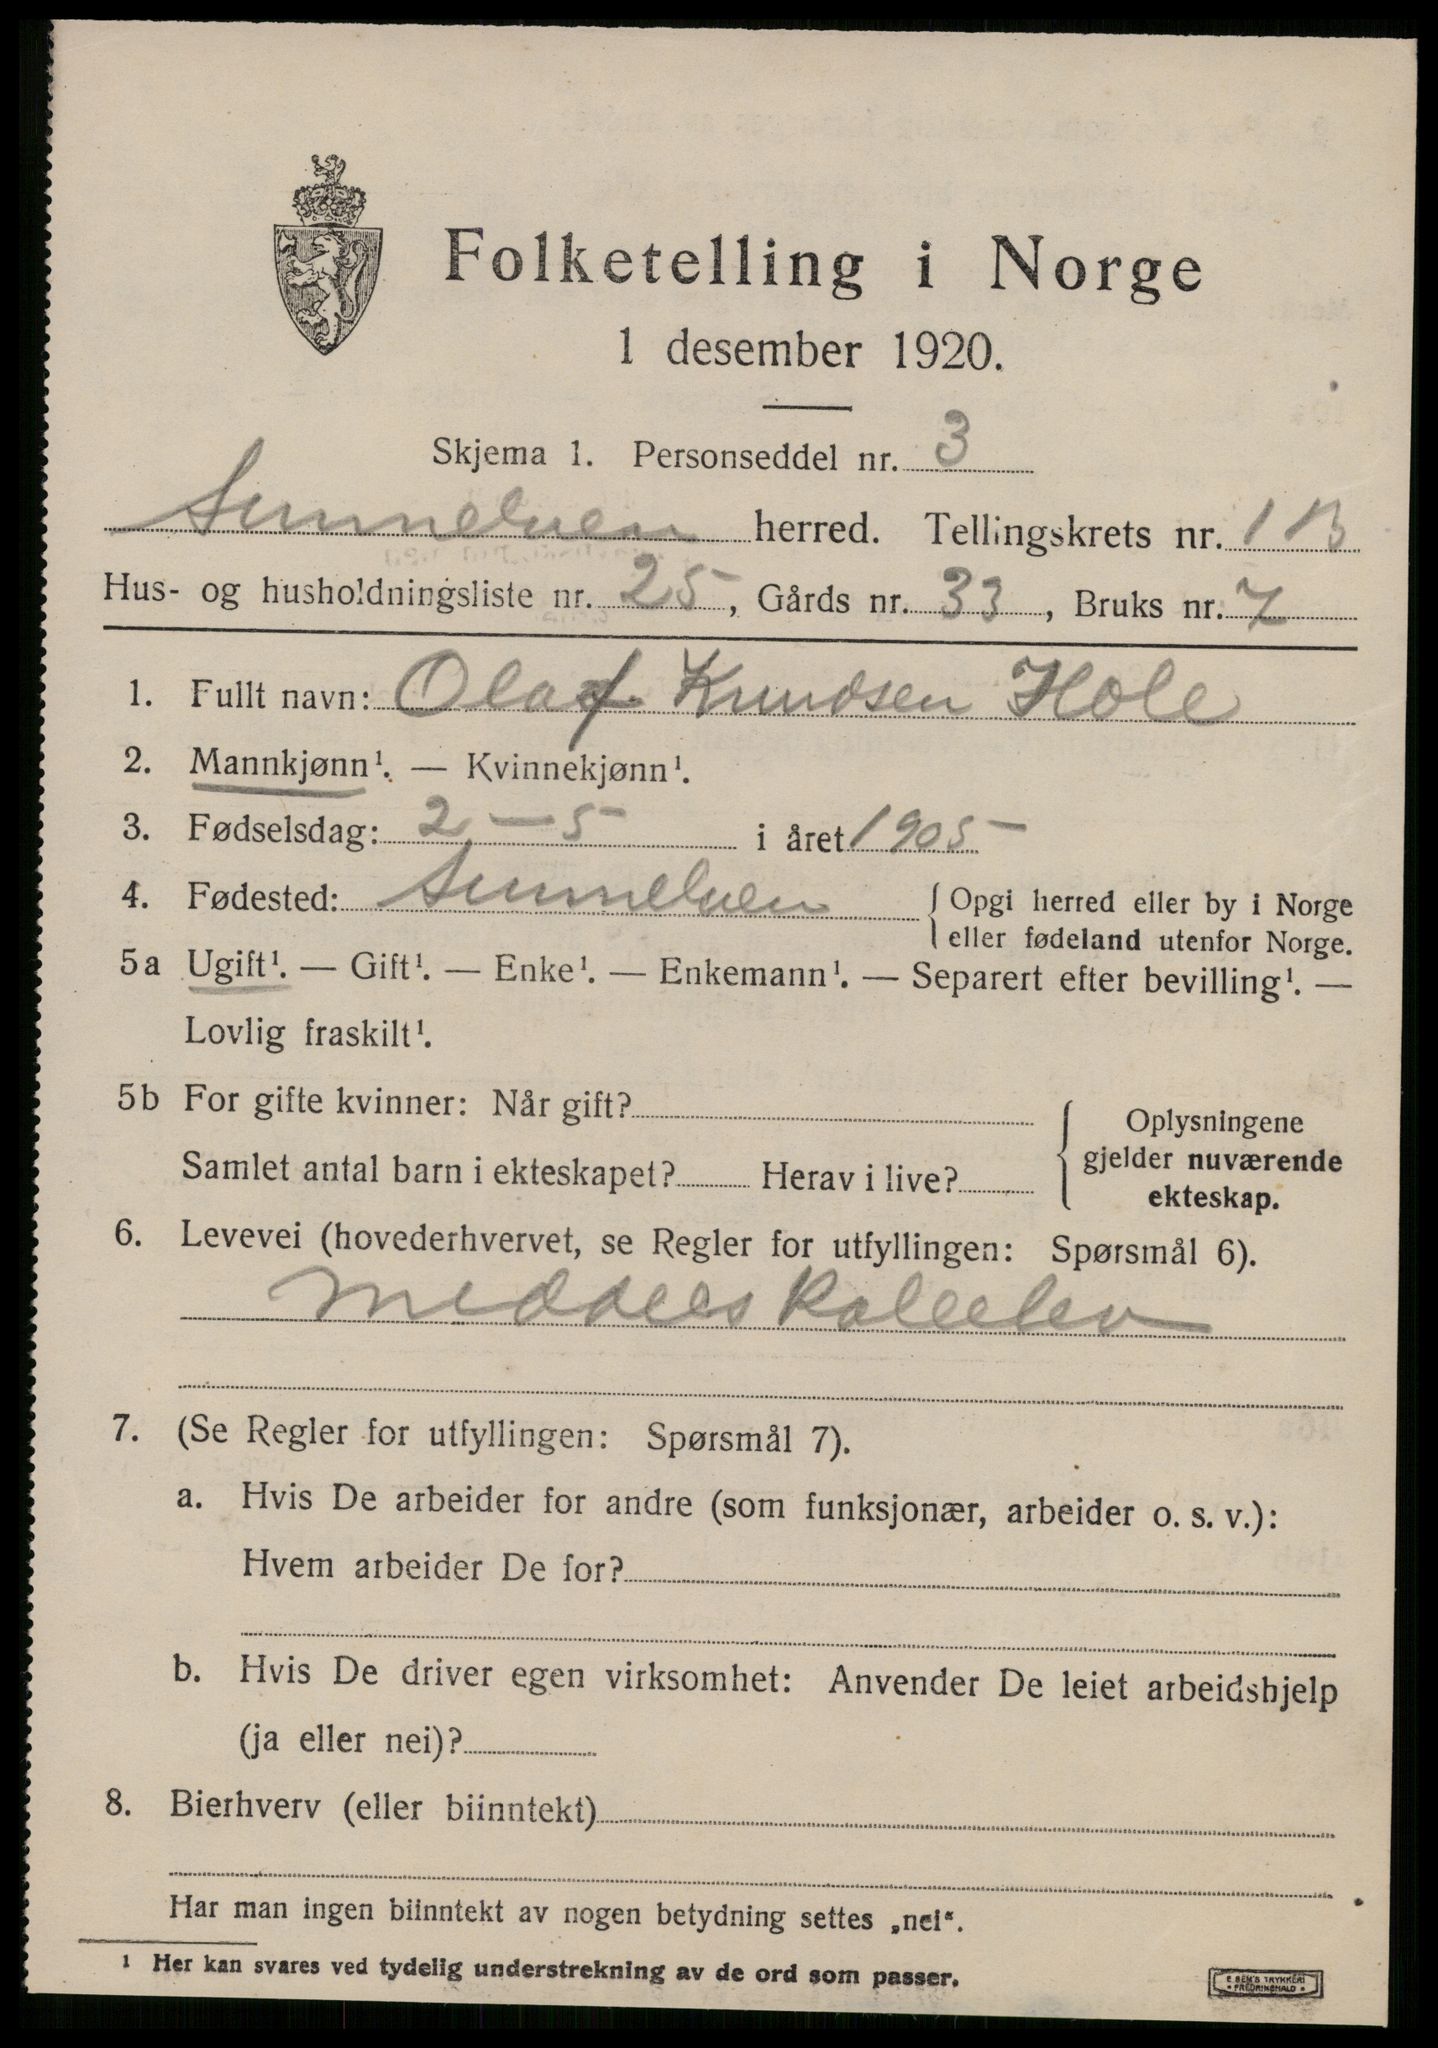 Folketelling i Norge
1 desember 1920.
Skjema 1. Personseddel nr. 3
Sunnelven herred. Tellingskrets nr. 1 B
Hus- og husholdningsliste nr. 25, Gårds nr. 33, Bruks nr. 7
1. Fullt navn: Olaf Knudsen Hole
2. Mannkjønn¹. — Kvinnekjønn¹.
3. Fødselsdag: 2 – 5 i året 1905
4. Fødested: Sunnelven { Opgi herred eller by i Norge
eller fødeland utenfor Norge.
5a Ugift¹. — Gift¹. — Enke¹. — Enkemann¹. — Separert efter bevilling¹. —
Lovlig fraskilt¹.
5b For gifte kvinner: Når gift?
Samlet antal barn i ekteskapet? Herav i live?
{ Oplysningene
gjelder nuværende
ekteskap.
6. Levevei (hovederhvervet, se Regler for utfyllingen: Spørsmål 6).
Middelskoleelev
7. (Se Regler for utfyllingen: Spørsmål 7).
a. Hvis De arbeider for andre (som funksjonær, arbeider o. s. v.):
Hvem arbeider De for?
b. Hvis De driver egen virksomhet: Anvender De leiet arbeidshjelp
(ja eller nei)?
8. Bierhverv (eller biinntekt)
Har man ingen biinntekt av nogen betydning settes „nei“.
¹ Her kan svares ved tydelig understrekning av de ord som passer.
E. SEM'S TRYKKERI
• FREDRIKSHALD •